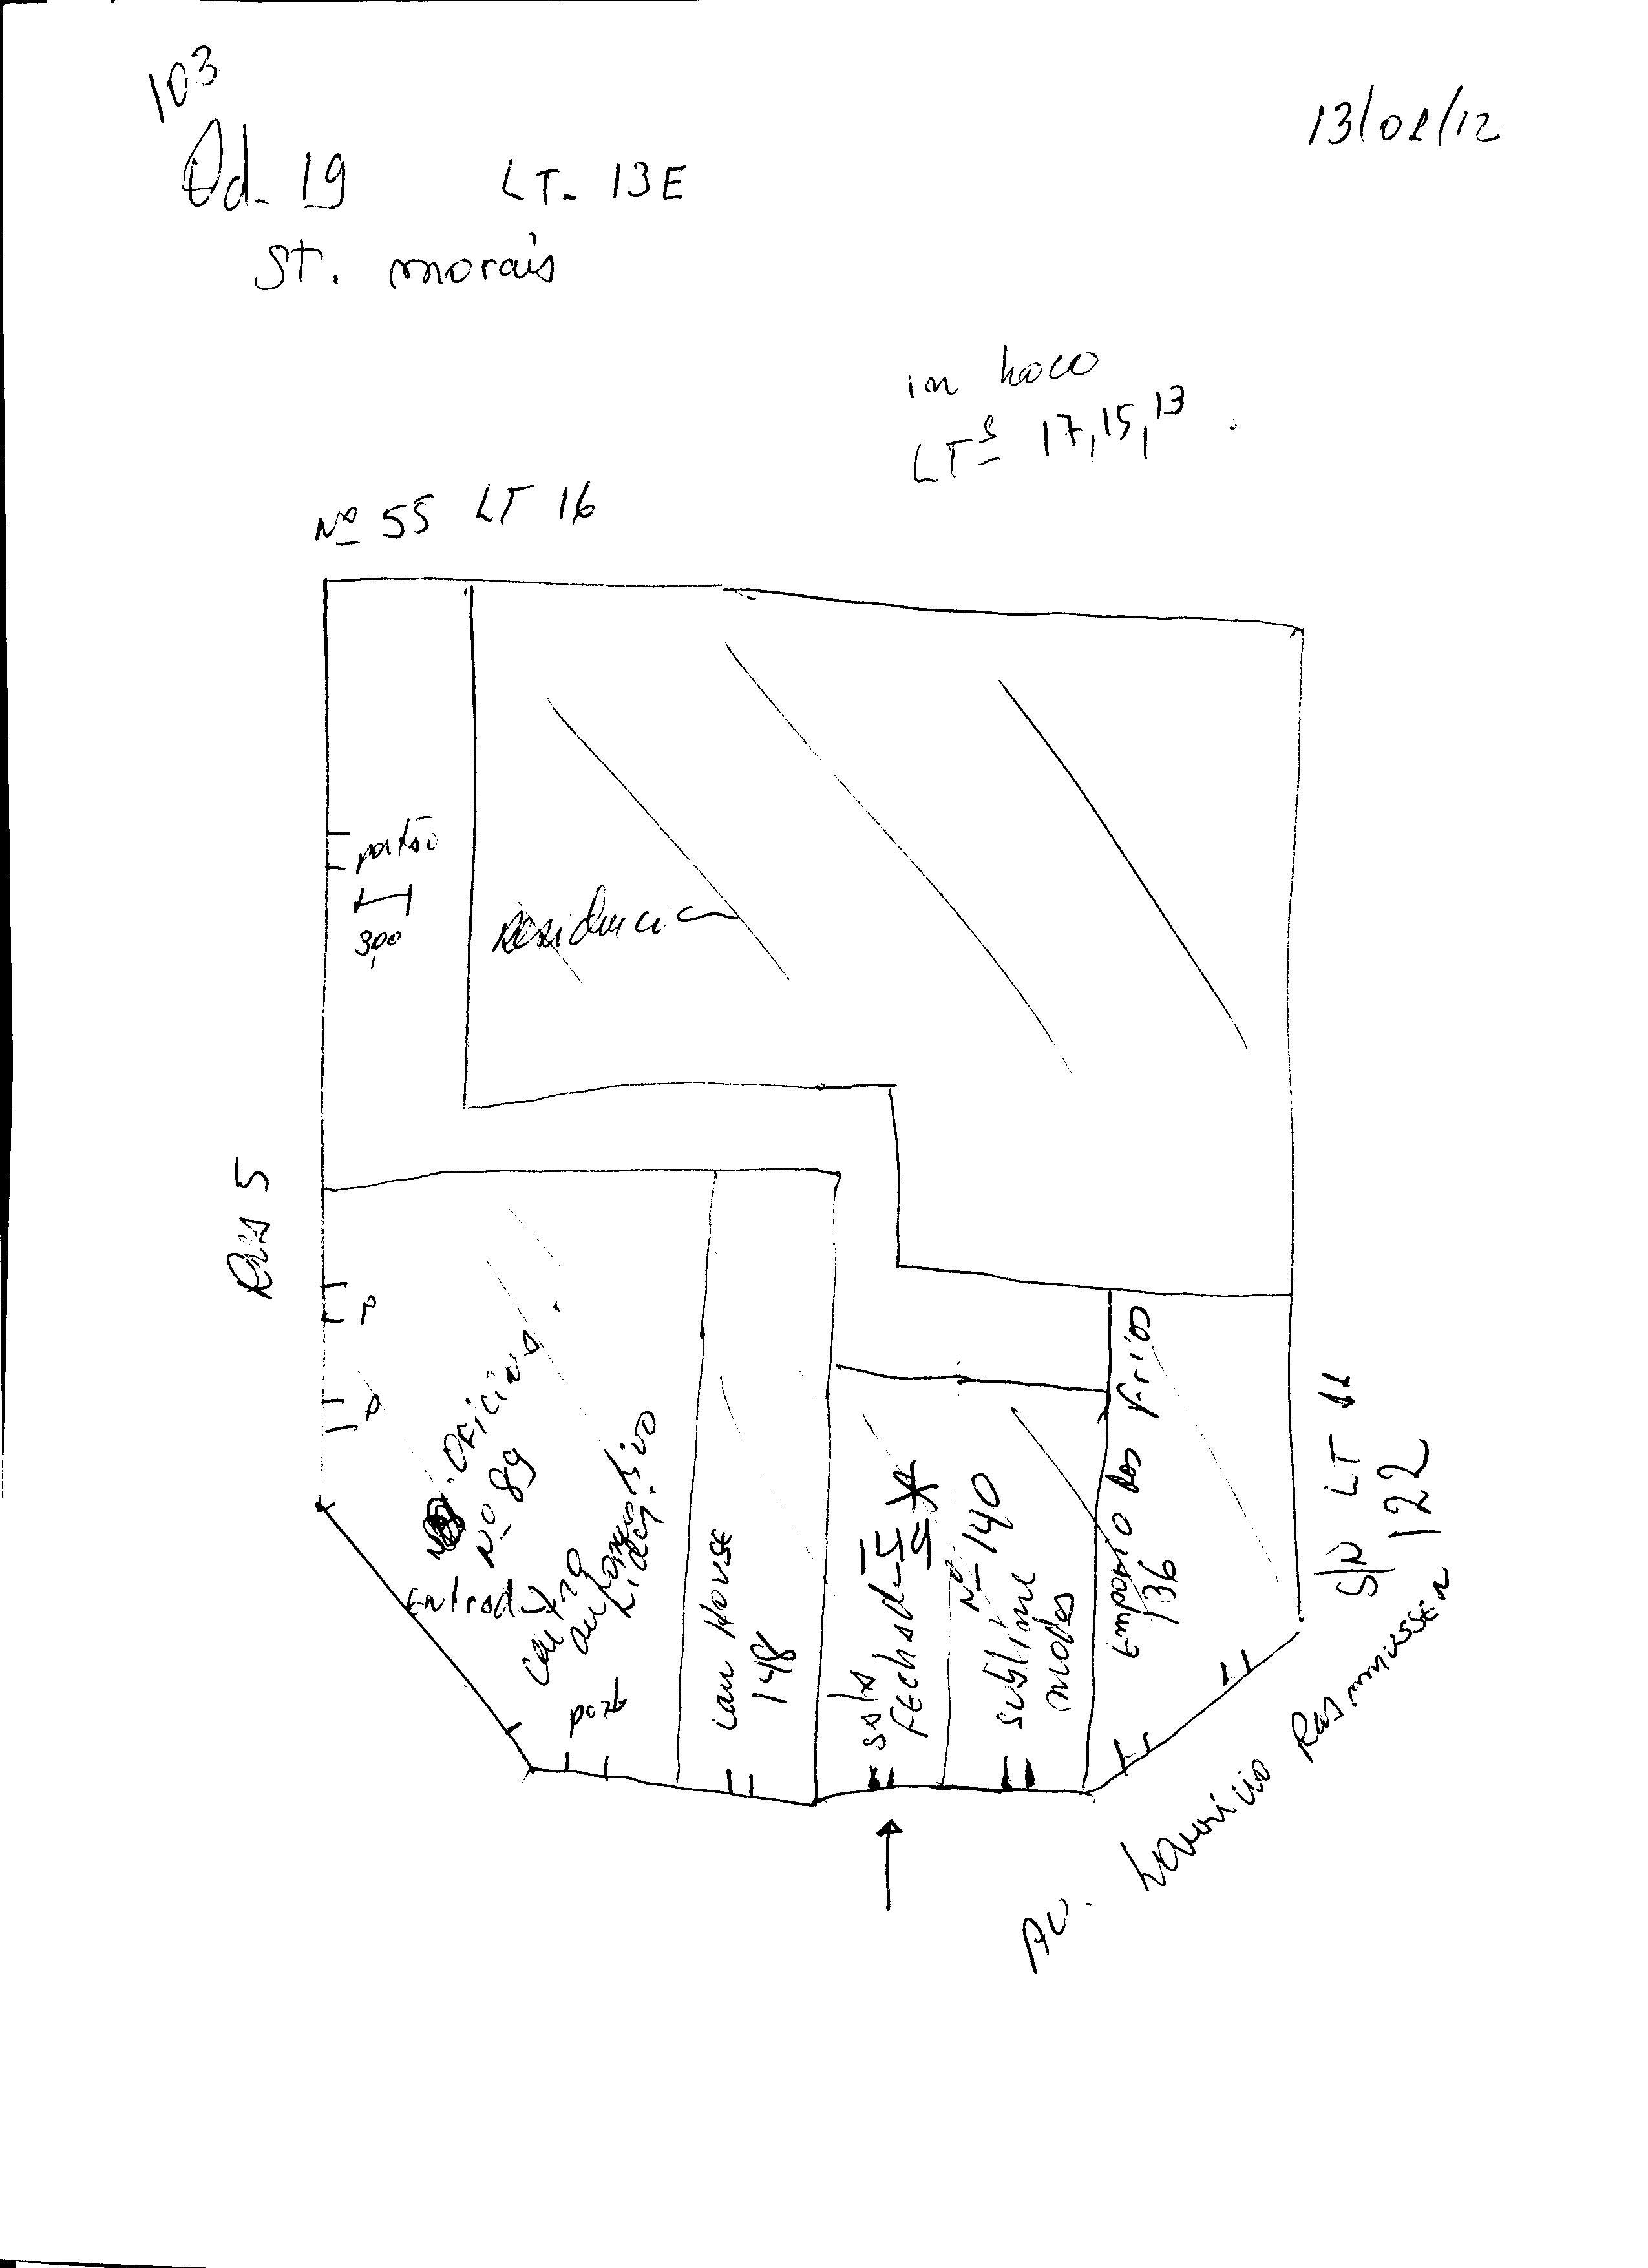 103
13/01/12
Qd. 19 LT. 13E
ST. morais
in loco
LTS 17,15,13
Nº 55 LT 16
portão
3,00
Residencia
Rua 5
P
P
Oficina
Nº 89
Entrada
Centro
automotivo
Lider
port
Lan House
148
Sala
Fechada
S/N
Nº 140
Sublime
modas
Emporio dos Frios
136
S/N LT 11
122
AV. Lauricio Rasmussen